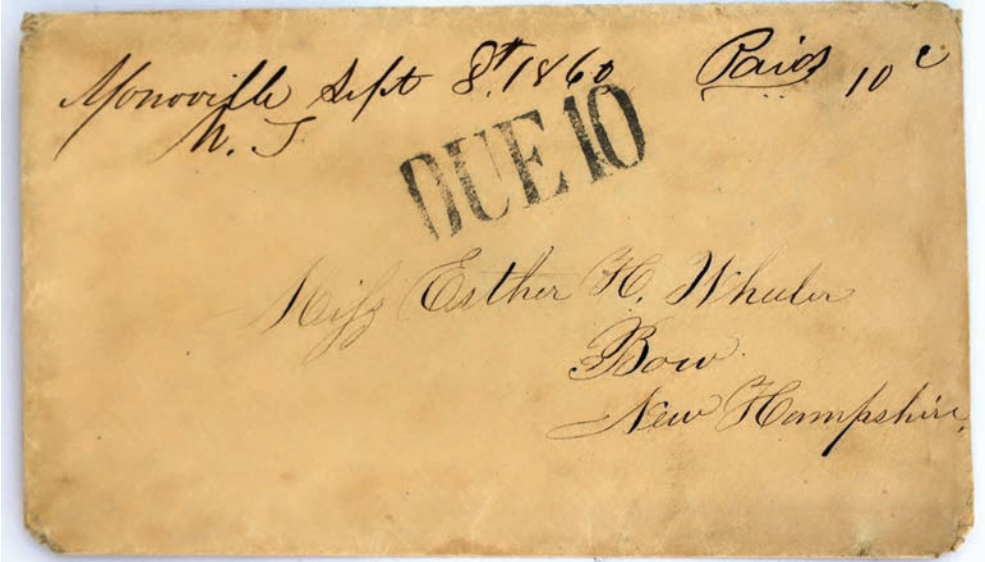 Monoville Sept 8th 1860 Paid 10 c
N. T
DUE 10
Miss Esther H. Wheeler
Bow
New Hampshire,